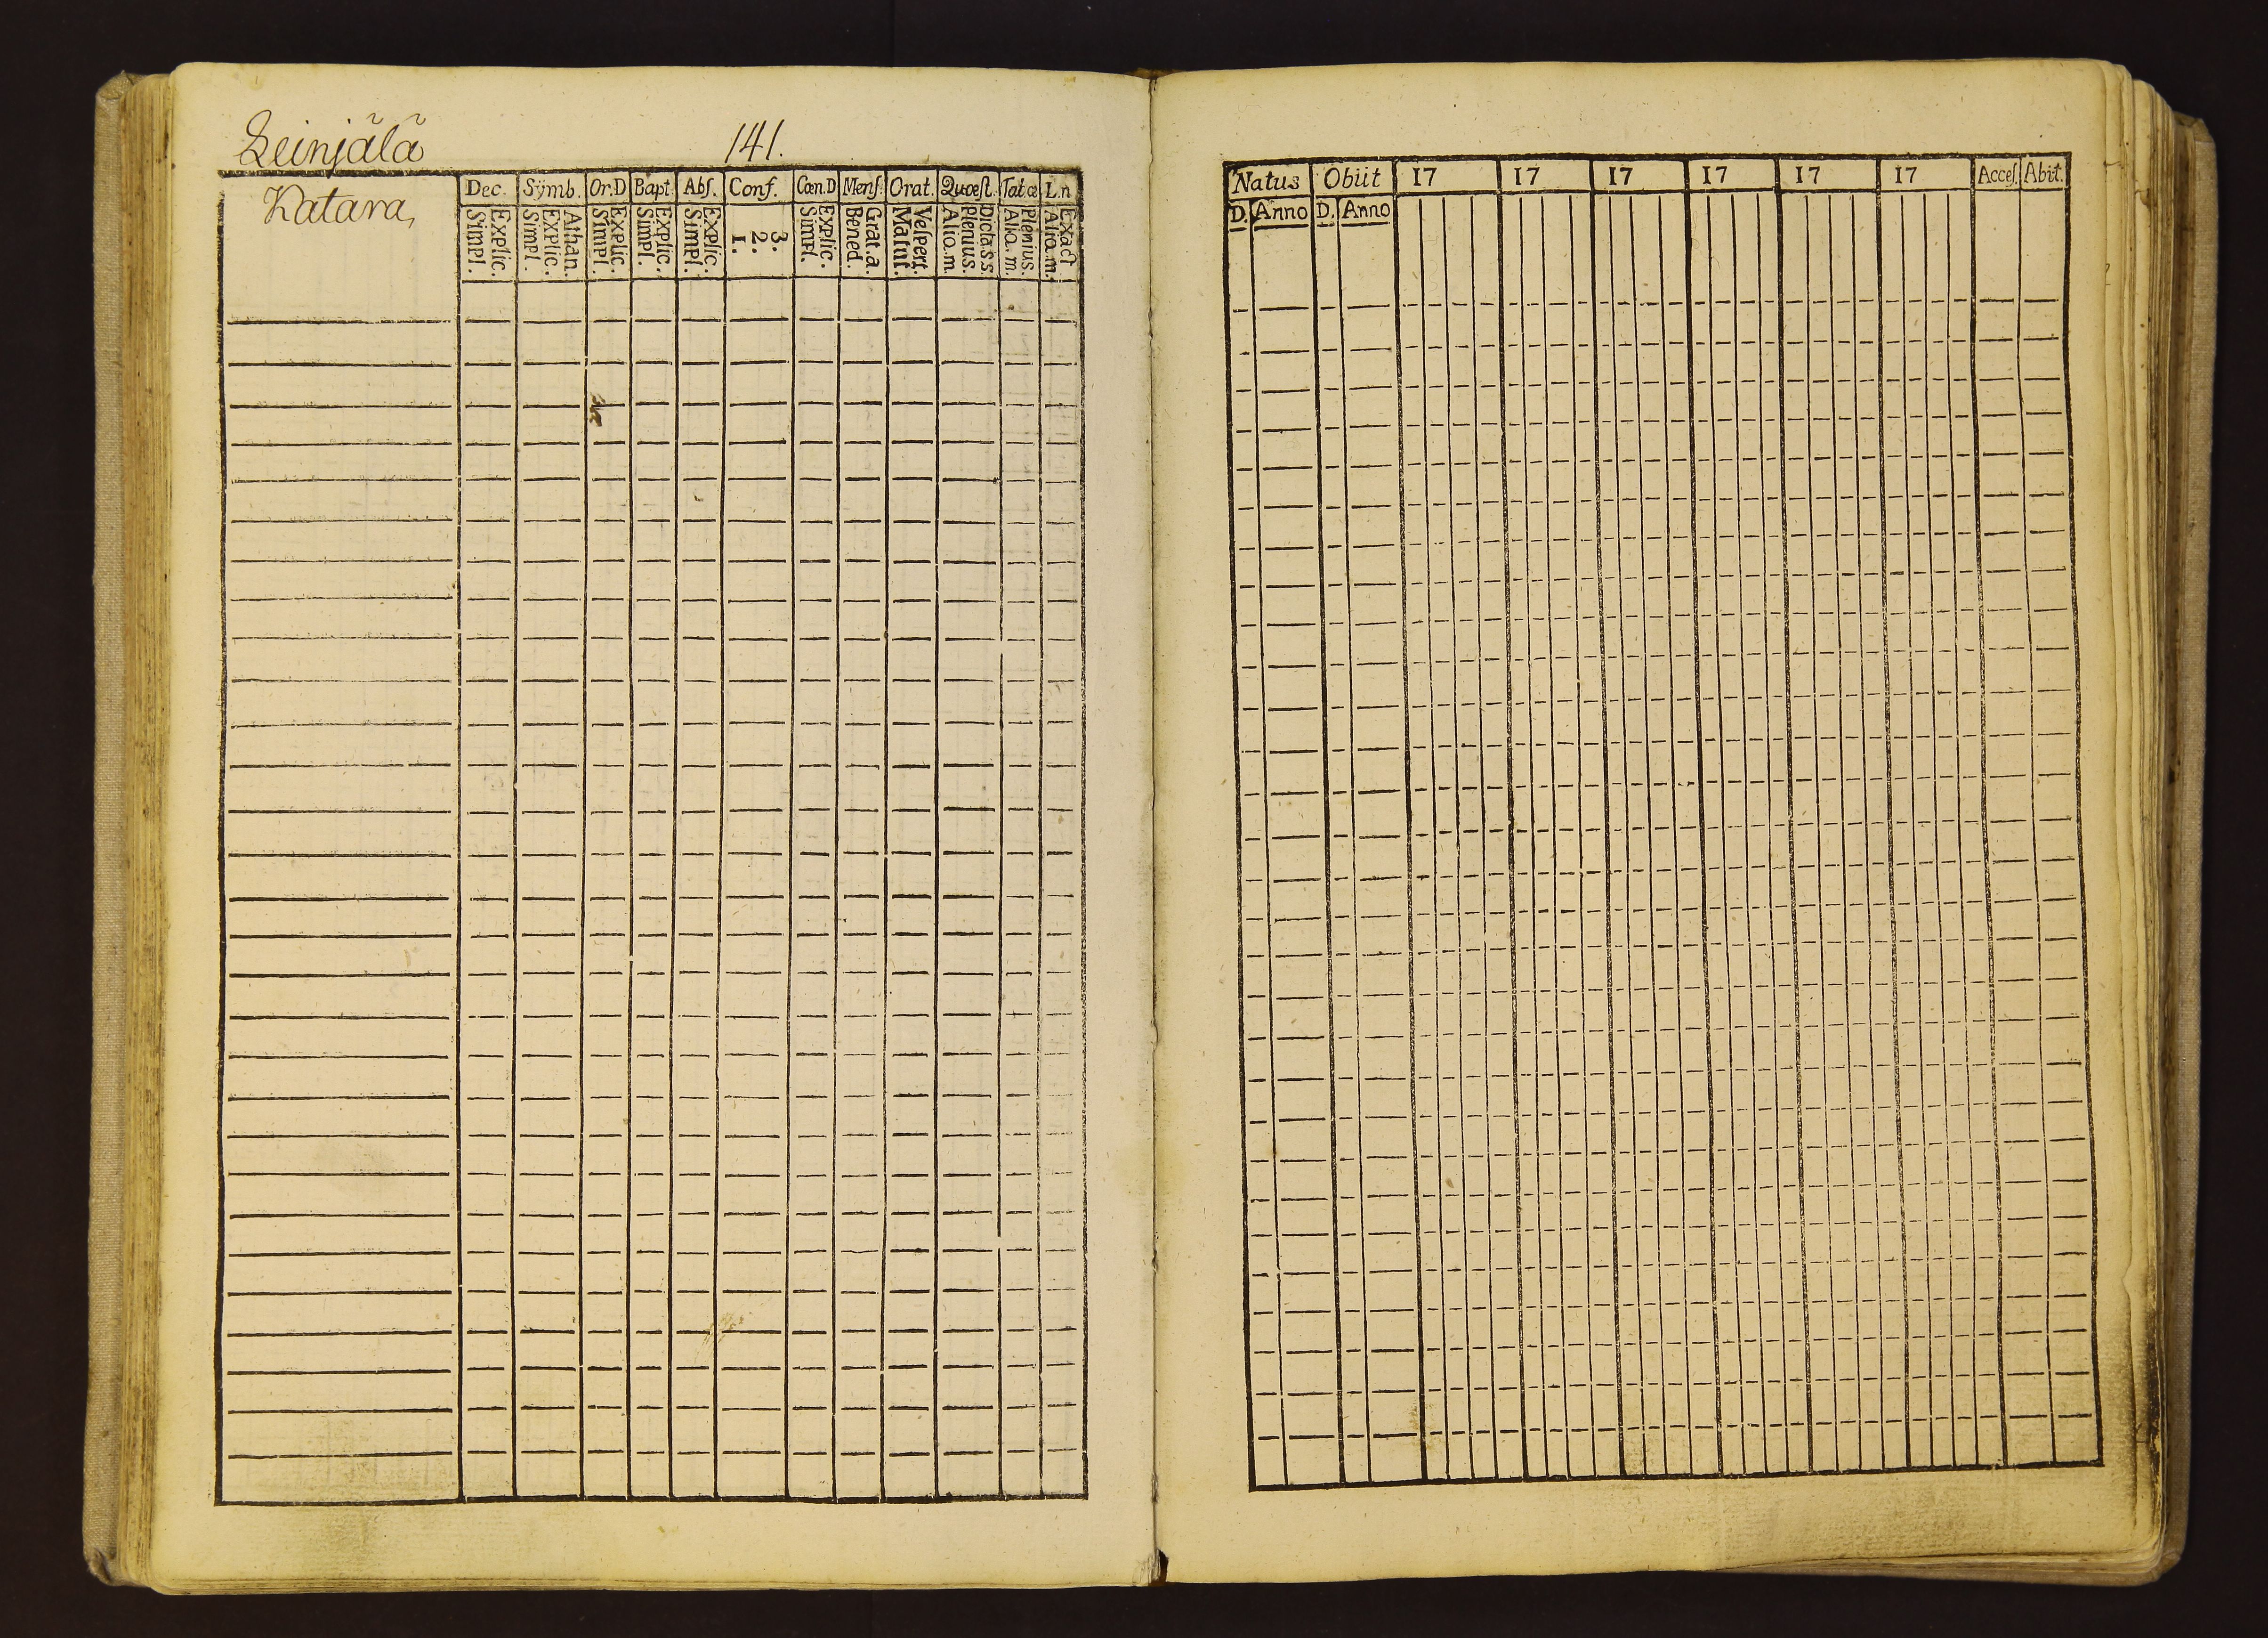 Leinjälä 141.
Katara,
Dec. Sÿmb. Or.D Bapt. Abſ. Conf. Cœn.D Menſ. Orat. Quœſt. Tat.œ L.n
Simpl. Explic. Simpl. Explic. Athan. Simpl. Explic. Simpl. Explic. Simpl. Explic. 1. 2. 3. Simpl. Explic. Bened. Grat.a. Matut. Veſpert. Alio.m. Plenius. Dicta.s.s. Alia.m. Plenius. Alia.m. Exact
Natus Obiit 17 17 17 17 17 17 Acceſ. Abit.
D. Anno D. Anno